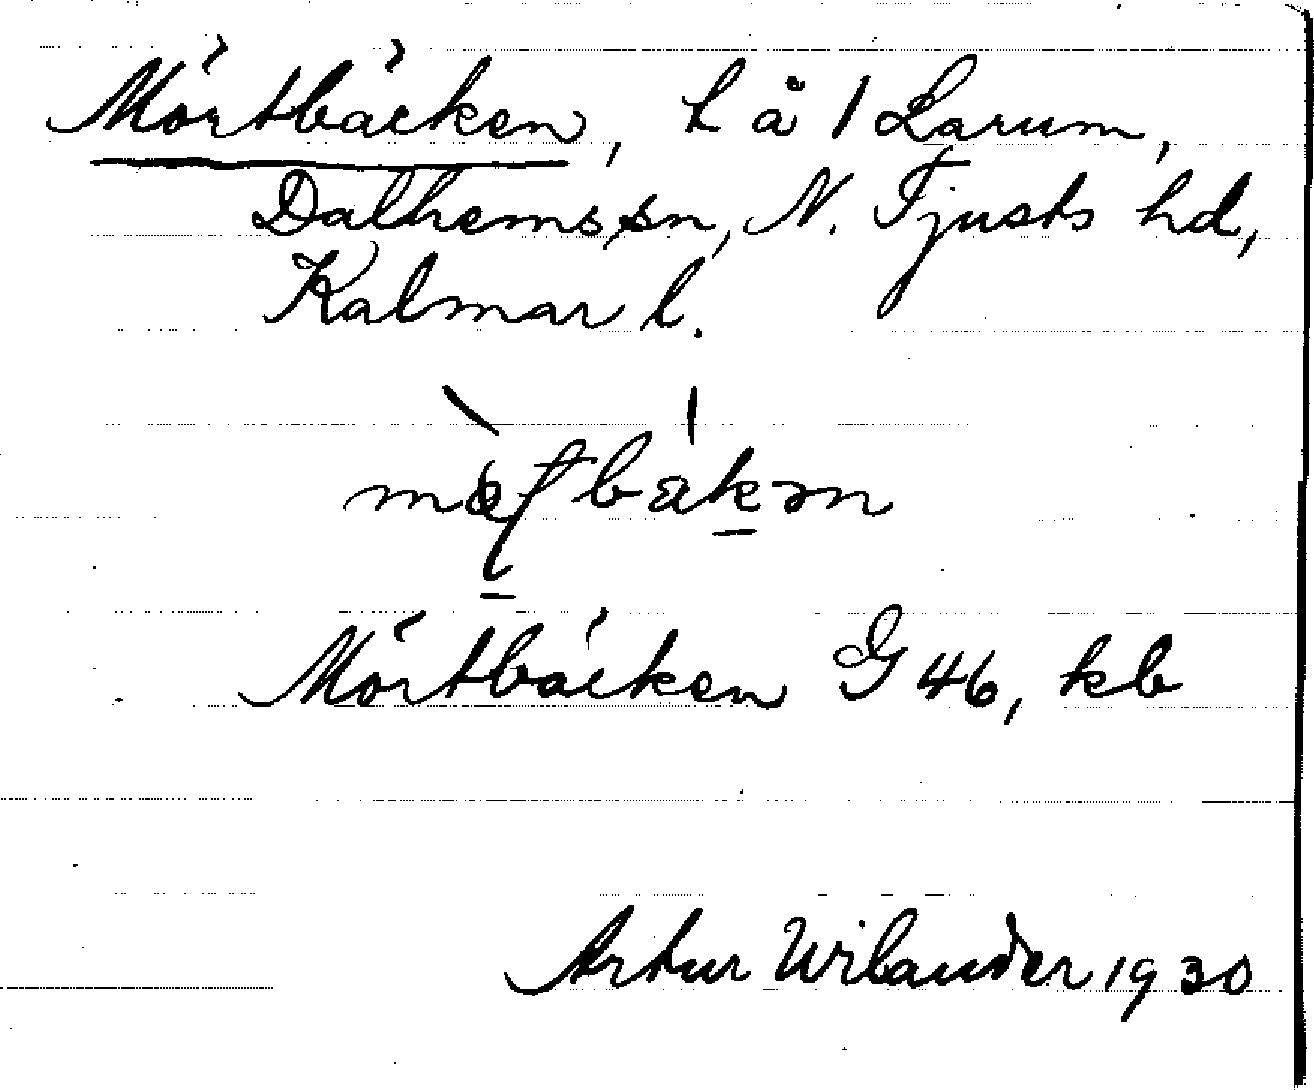 Mörtbäcken, L å 1 Larum,
Dalhems sn, N. Tjusts hd,
Kalmar l.
Mörtbäcken G 46, kb
Artur Wilander 1930